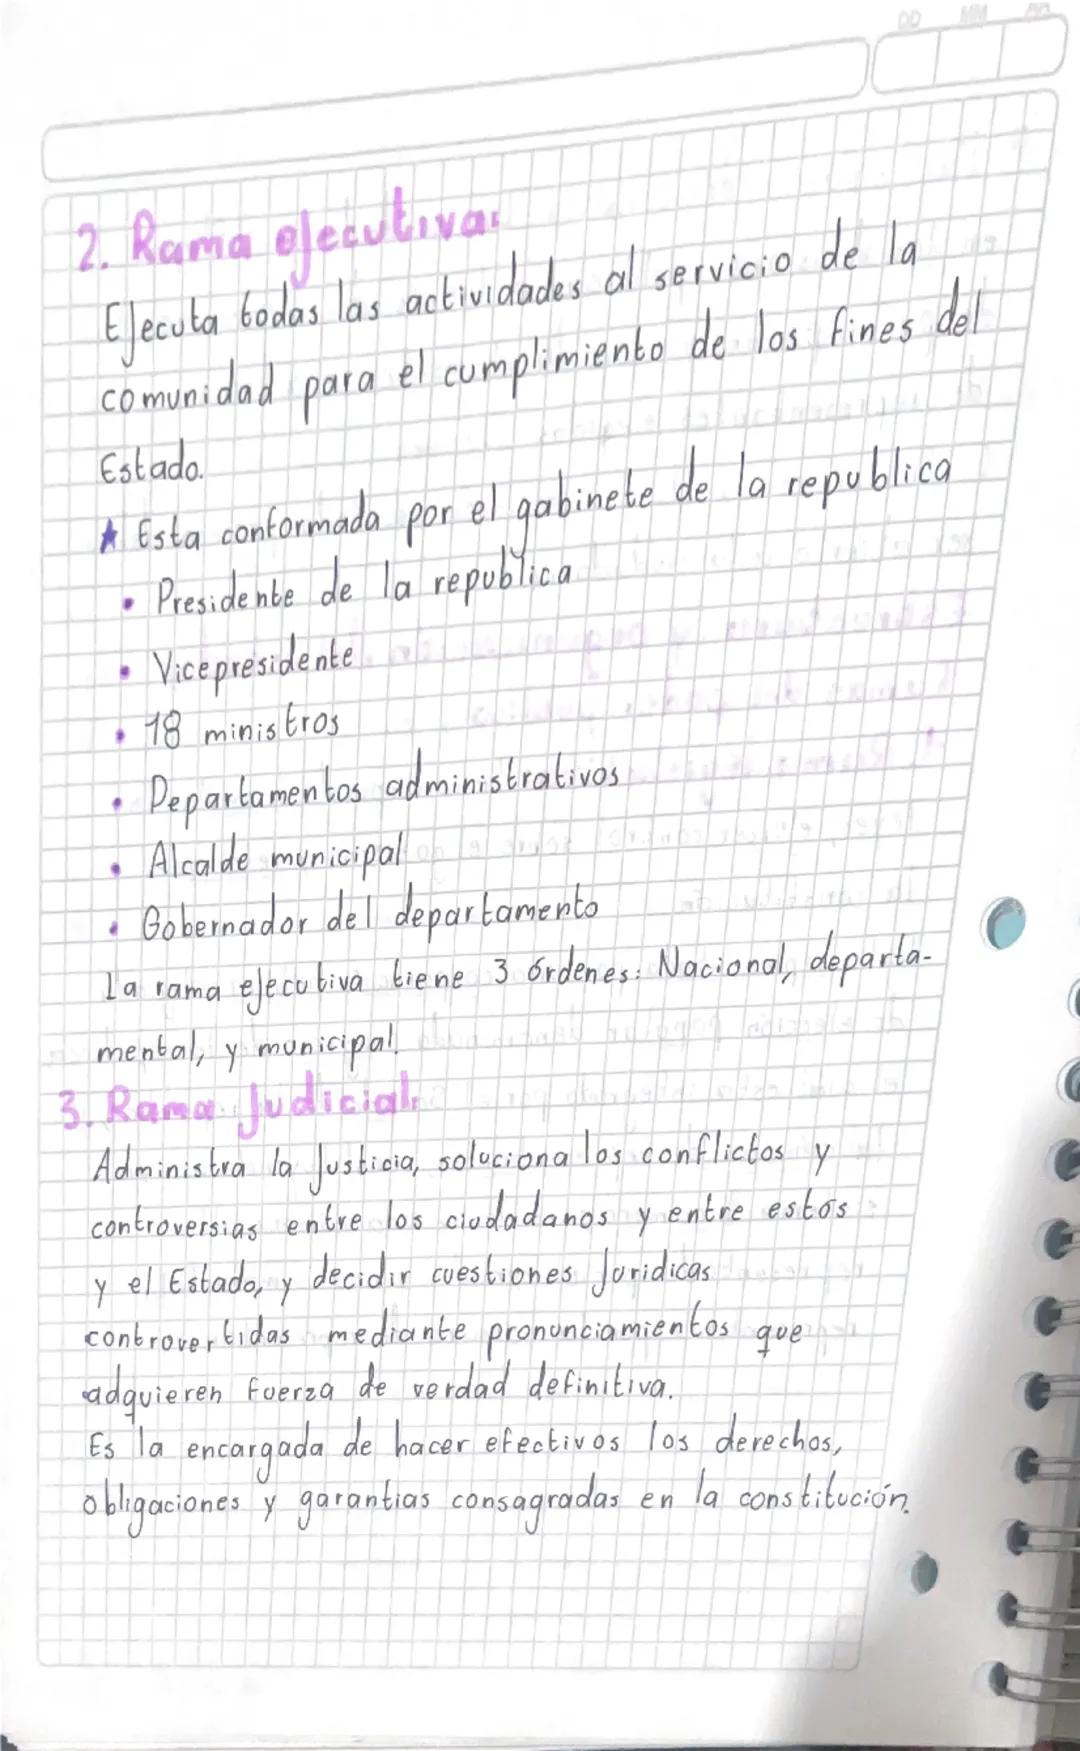 DD MM AA
2. Rama ejecutiva:
Ejecuta todas las actividades al servicio de la
comunidad para el cumplimiento de los fines del
Estado.
★ Esta conformada por el gabinete de la republica
• Presidente de la republica
• Vicepresidente
• 18 ministros
• Departamentos administrativos
• Alcalde municipal
• Gobernador del departamento
La rama ejecutiva tiene 3 órdenes: Nacional, departa-
mental, y municipal.
3. Rama Judicial:
Administra la Justicia, soluciona los conflictos y
controversias entre los ciudadanos y entre estos
y el Estado, y decidir cuestiones Juridicas
controvertidas mediante pronunciamientos que
adquieren fuerza de verdad definitiva.
Es la encargada de hacer efectivos los derechos,
obligaciones y garantias consagradas en la constitución.